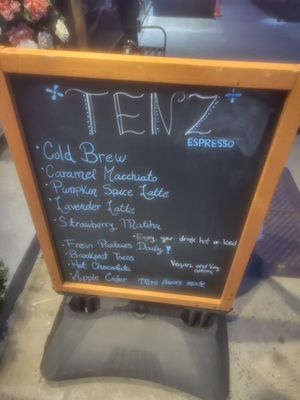 TENZ
ESPRESSO
• Cold Brew
• Caramel Macchiato
• Pumpkin Spice Latte
• Lavender Latte
• Strawberry Matcha
• Enjoy your drink hot or iced
• Fresh Pastries Daily
• Breakfast Tacos
• Hot Chocolate
Vegan and Veg. options
• Apple Cider
More flavors inside